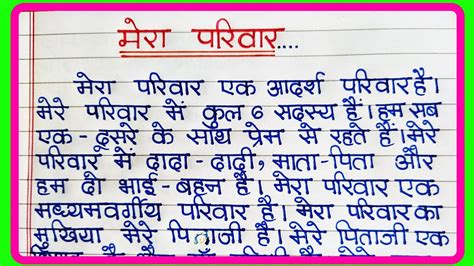 मेरा परिवार....
मेरा परिवार एक आदर्श परिवार है।
मेरे परिवार में कुल 6 सदस्य हैं। हम सब
एक-दूसरे के साथ प्रेम से रहते हैं। मेरे
परिवार में दादा-दादी, माता-पिता और
हम दो भाई-बहन हैं। मेरा परिवार एक
मध्यमवर्गीय परिवार है। मेरा परिवार का
मुखिया मेरे पिताजी है। मेरे पिताजी एक